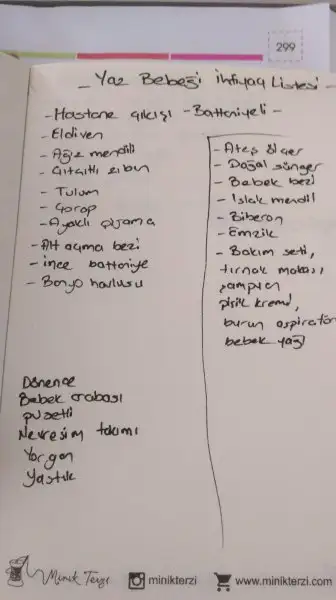 299
- Yaz Bebeği ihtiyaç Listesi -
- Hastane çıkışı - Battaniyeli -
- Eldiven
- Ağız mendili
- Çıtçıtlı zıbın
- Tulum
- Çorap
- Ayaklı pijama
- Alt açma bezi
- ince battaniye
- Banyo havlusu
Dönence
Bebek arabası
pusetli
Nevresim takımı
Yorgan
Yastık
- Ateş ölçer
- Doğal sünger
- Bebek bezi
- Islak mendil
- Biberon
- Emzik
- Bakım seti,
tırnak makası,
şampuan
pişik kremi,
burun aspiratör
bebek yağı
Minik Terzi
minikterzi
www.minikterzi.com